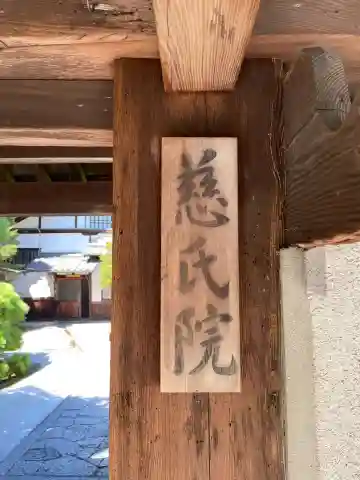 慈氏院